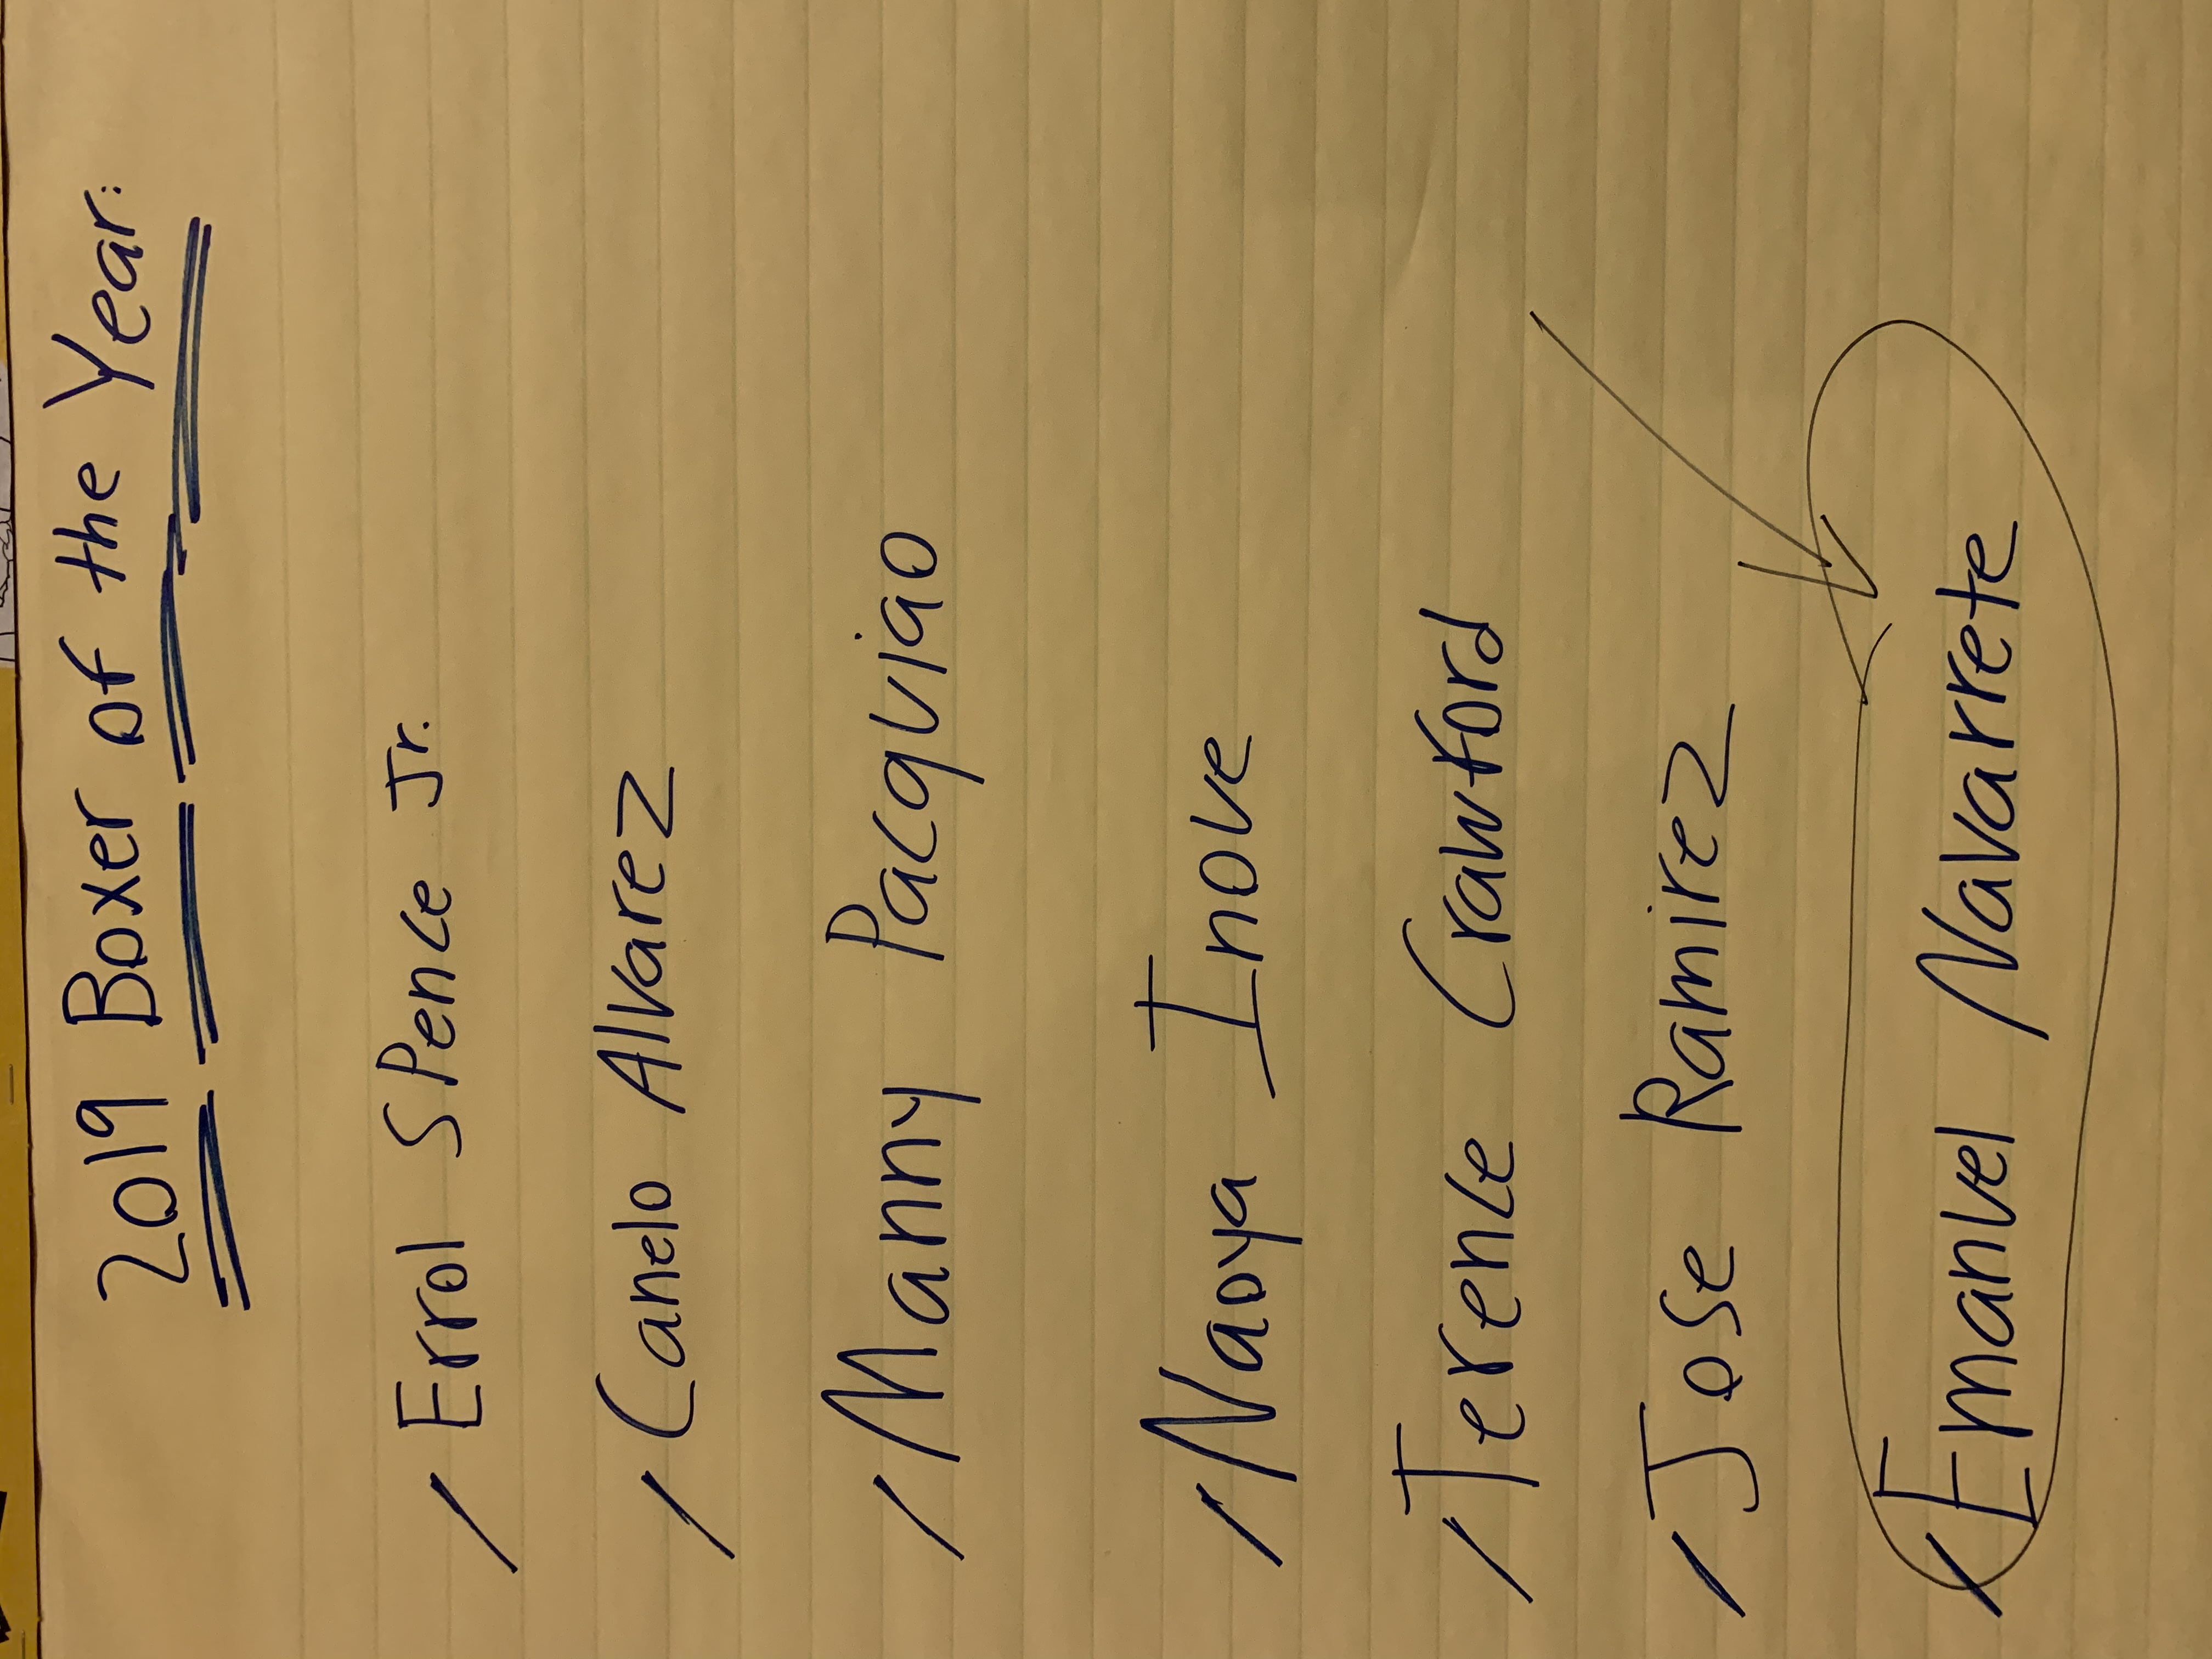 2019 Boxer of the Year:
/ Errol Spence Jr.
/ Canelo Alvarez
/ Manny Pacquiao
/ Naoya Inoue
/ Terence Crawford
/ Jose Ramirez
/ Emanuel Navarrete